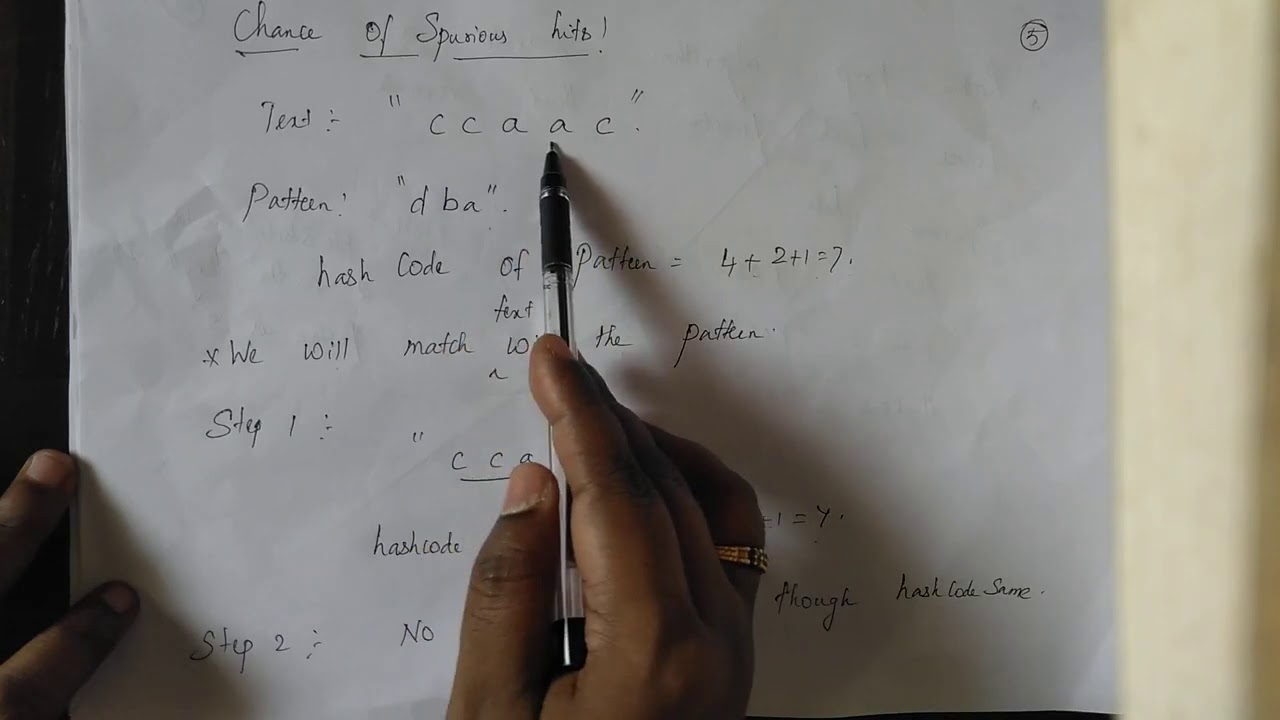 Chance Of Spurious hits!
5
Text :- " c c a a c ".
Pattern: "d ba".
hash Code Of Pattern = 4 + 2+1=7.
text
* We will match the pattern.
Step 1 :-
" c c a
hashcode +1 = 7.
though hashCode Same.
Step 2 :- NO